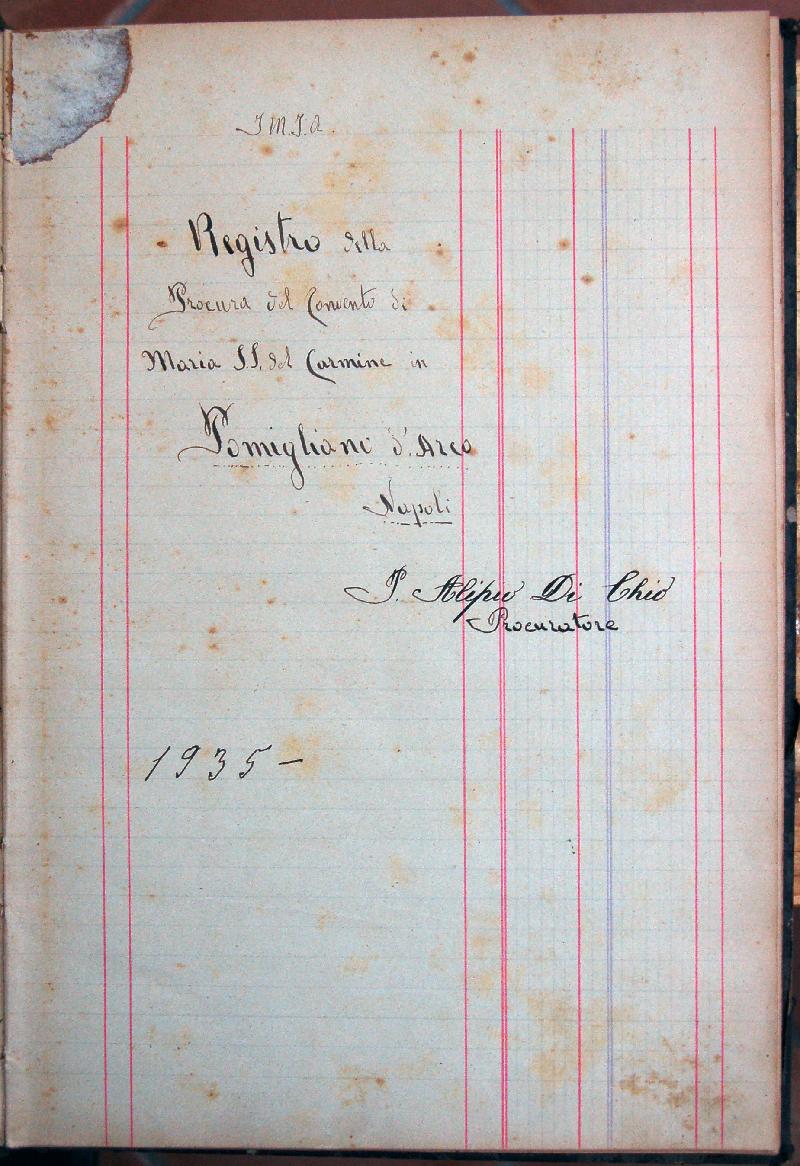 J. M. J. A.
Registro della
Procura del Convento di
Maria SS. del Carmine in
Pomigliano d'Arco
Napoli
P. Alipio Di Chio
Procuratore
1935 –